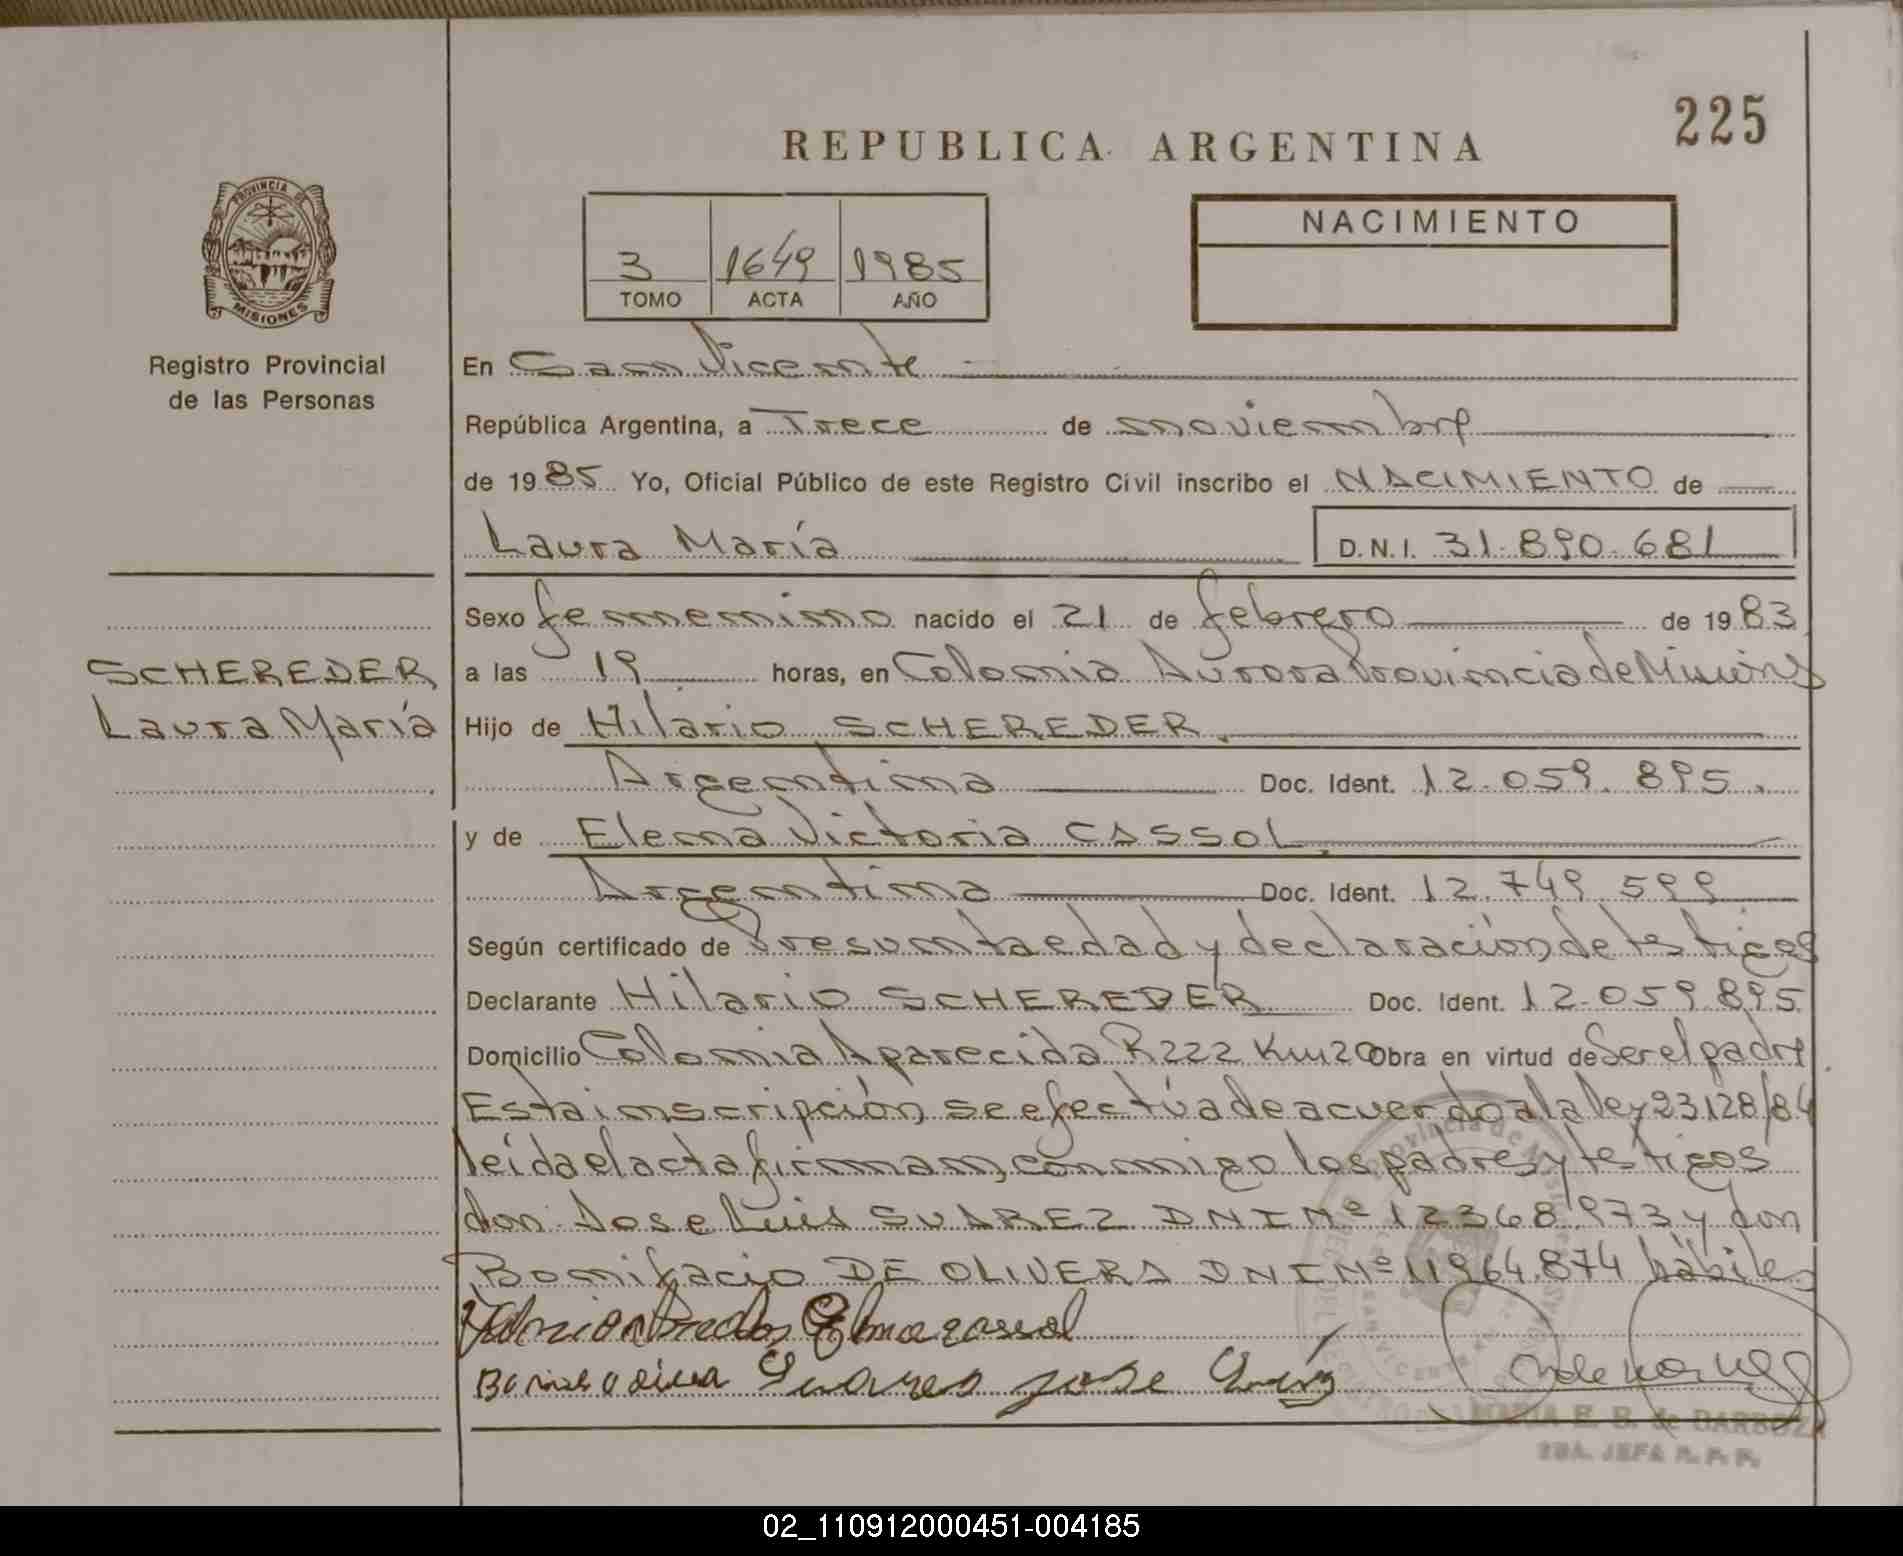 225
REPUBLICA ARGENTINA
PROVINCIA DE
MISIONES
Registro Provincial
de las Personas
3 1649 1985
TOMO ACTA AÑO
NACIMIENTO
En San Vicente
República Argentina, a Trece de noviembre
de 1985 Yo, Oficial Público de este Registro Civil inscribo el NACIMIENTO de
Laura María D.N.I. 31.890.681
Sexo femenino nacido el 21 de febrero de 1983
SCHEREDER
Laura María
a las 19 horas, en Colonia Aurora Provincia de Misiones
Hijo de Hilario SCHEREDER.
Argentina Doc. Ident. 12.059.895.
y de Elena Victoria CASSOL.
Argentina Doc. Ident. 12.749.599
Según certificado de Presunta edad y declaración de testigos
Declarante Hilario SCHEREDER Doc. Ident. 12.059.895.
Domicilio Colonia Aparecida R222 Km20 Obra en virtud de Ser el padre.
Esta inscripción se efectúa de acuerdo a la ley 23.128/84
leída el acta firman conmigo los padres y testigos
don Jose Luis SUAREZ DNI Nº 12368973 y don
Bonifacio DE OLIVERA DNI Nº 11964.874 hábiles
Suares Jose Luis
MARIA E. B. de BARBOZA
2DA. JEFA R. P. P.
02_110912000451-004185